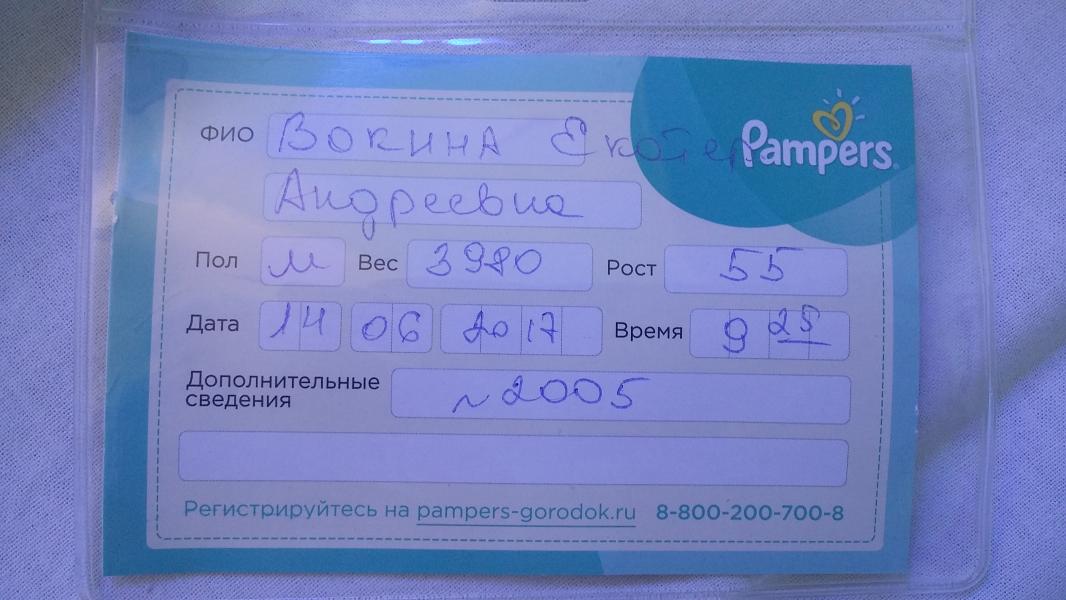 ФИО Вокина
Pampers
Андреевна
Пол м Вес 3980 Рост 55
Дата 14 06 2017 Время 9 25
Дополнительные
сведения ~2005
Регистрируйтесь на pampers-gorodok.ru 8-800-200-700-8